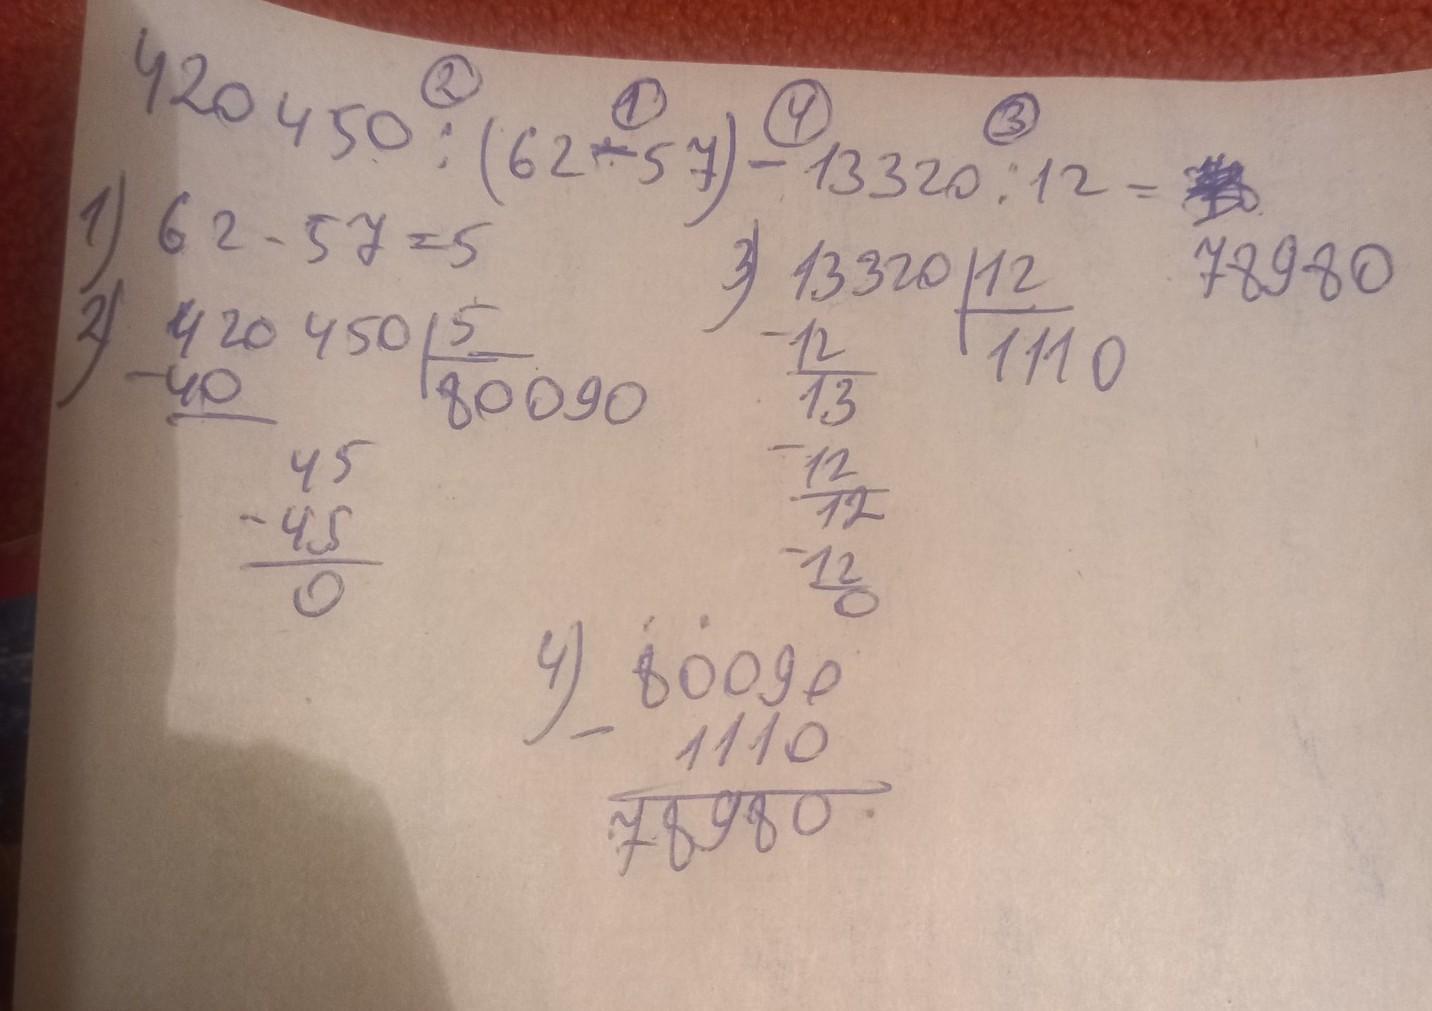 420 450 : (62 - 57) - 13320 : 12 =
② ① ④ ③
78980
1) 62 - 57 = 5
2) 420 450 | 5
- 40
80090
45
- 45
0
3) 13320 | 12
- 12
1110
13
- 12
12
- 12
0
4) 80090
- 1110
78980